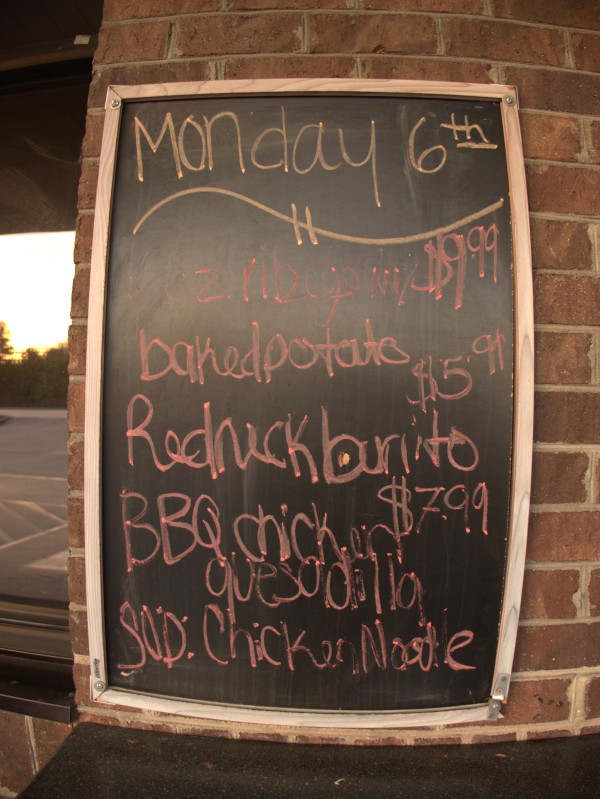 Monday 6th
oz. ribeye w/ $9.99
baked potato
$5.99
Redneck burrito
$7.99
BBQ chicken
quesadilla
SOD. Chicken Noodle